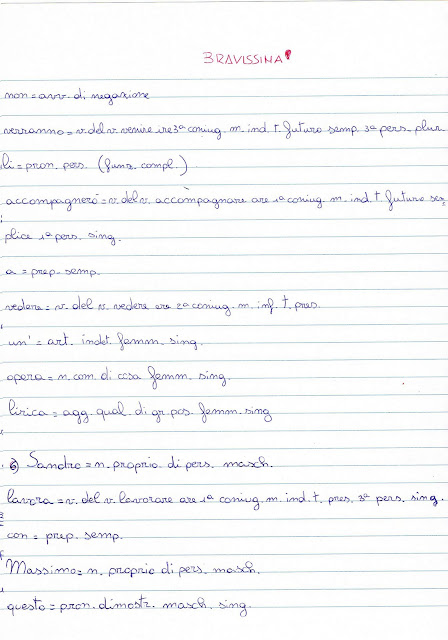 BRAVISSIMA!
non = avv. di negazione
verranno = v. del v. venire ire 3ª coniug. m. ind. t. futuro semp. 3ª pers. plur
li = pron. pers. (funz. compl.)
accompagnerò = v. del v. accompagnare are 1ª coniug. m. ind. t. futuro sem
plice 1ª pers. sing.
a = prep. semp.
vedere = v. del v. vedere ere 2ª coniug. m. inf. t. pres.
un' = art. indet. femm. sing.
opera = n. com. di cosa femm. sing.
lirica = agg. qual. di gr. pos. femm. sing
6) Sandro = n. proprio di pers. masch.
lavora = v. del v. lavorare are 1ª coniug. m. ind. t. pres. 3ª pers. sing.
con = prep. semp.
Massimo = n. proprio di pers. masch.
questo = pron. dimostr. masch. sing.